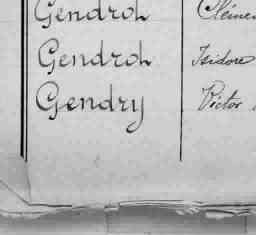 Gendrot Clémen
Gendrot Isidore
Gendry Victor